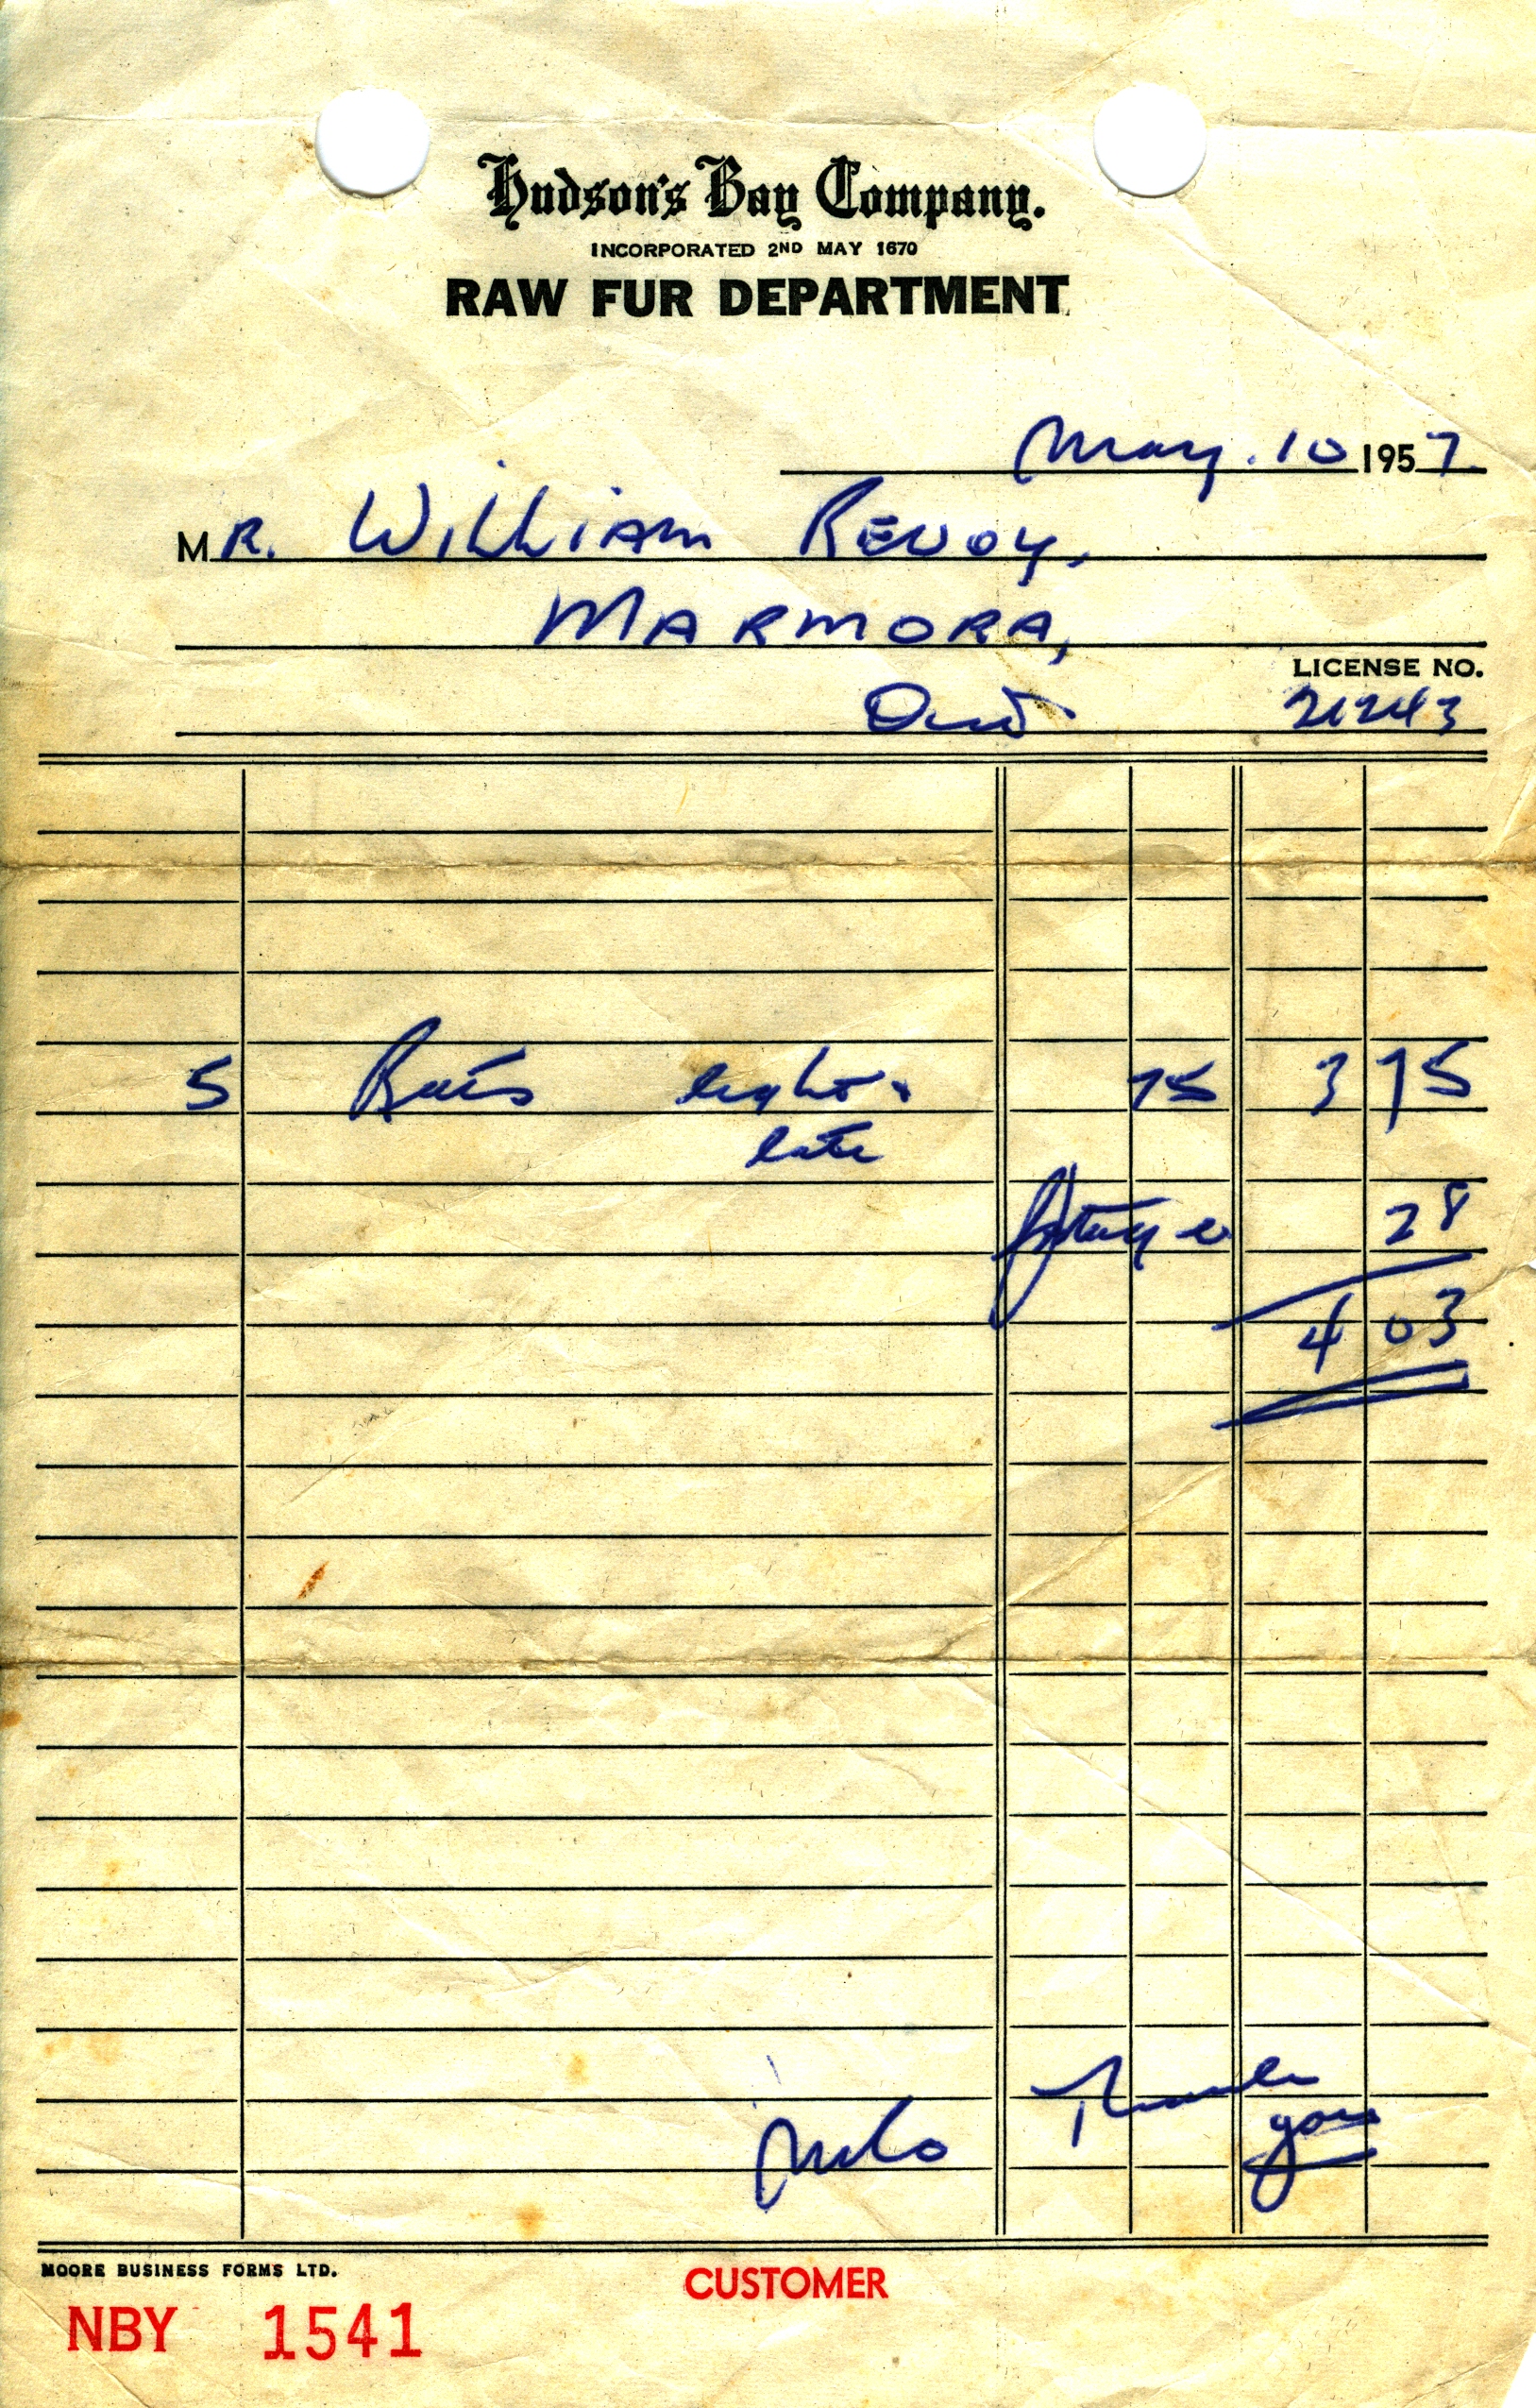 Hudson's Bay Company.
INCORPORATED 2ND MAY 1670
RAW FUR DEPARTMENT
May. 10 1957
MR. William Revoy,
Marmora,
LICENSE NO.
Ont 21243
5 Rats light & 75 3 75
late
Postage 28
4 03
Thank
you
MOORE BUSINESS FORMS LTD.
CUSTOMER
NBY 1541